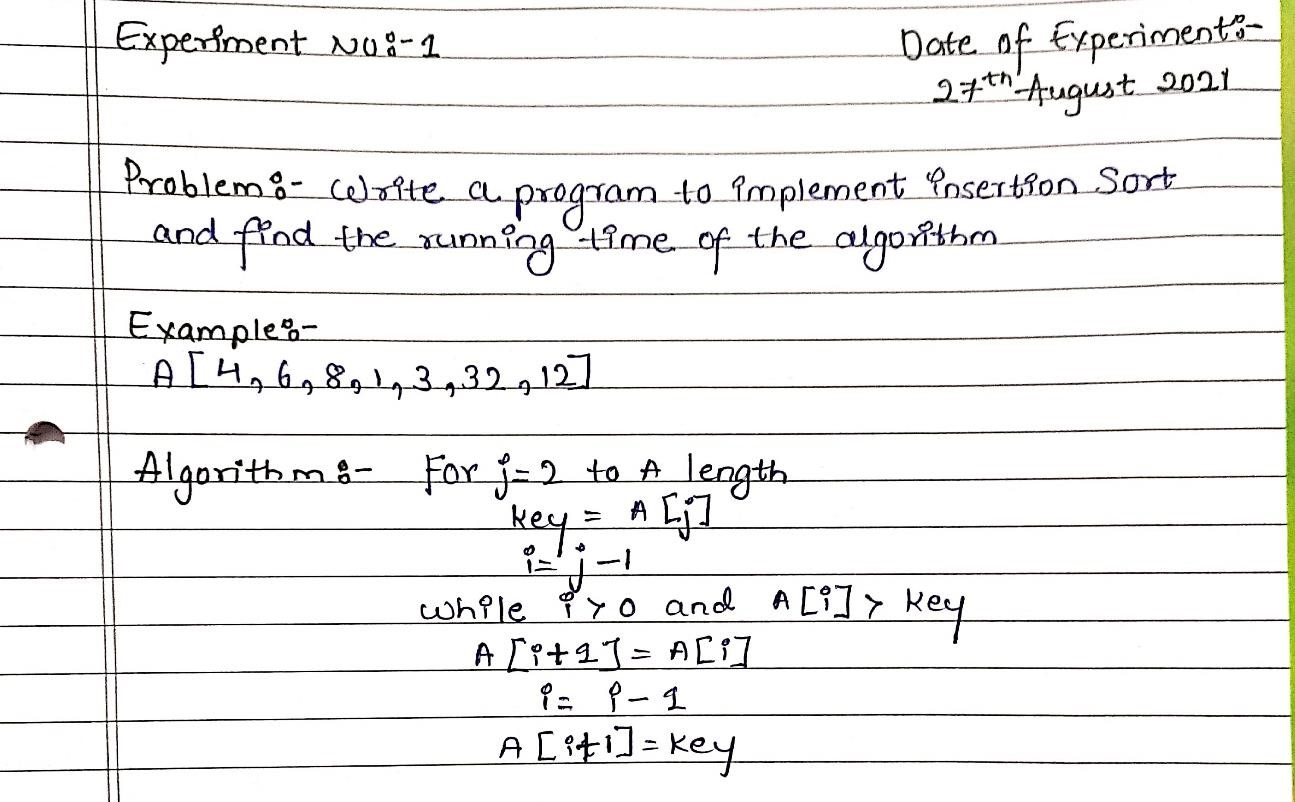 Experiment No:-1
Date of Experiment:-
27th August 2021
Problem:- Write a program to implement insertion Sort
and find the running time of the algorithm
Example:-
A [4, 6, 8, 1, 3, 32, 12]
Algorithm:- For j=2 to A length
key = A [j]
i= j-1
while i>0 and A [i] > key
A [i+1] = A[i]
i= i-1
A [i+1] = key